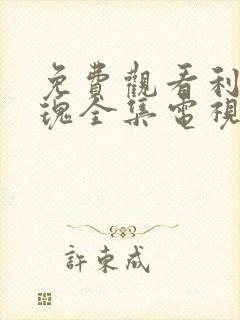 免費觀看利
瑰全集電視
許東成